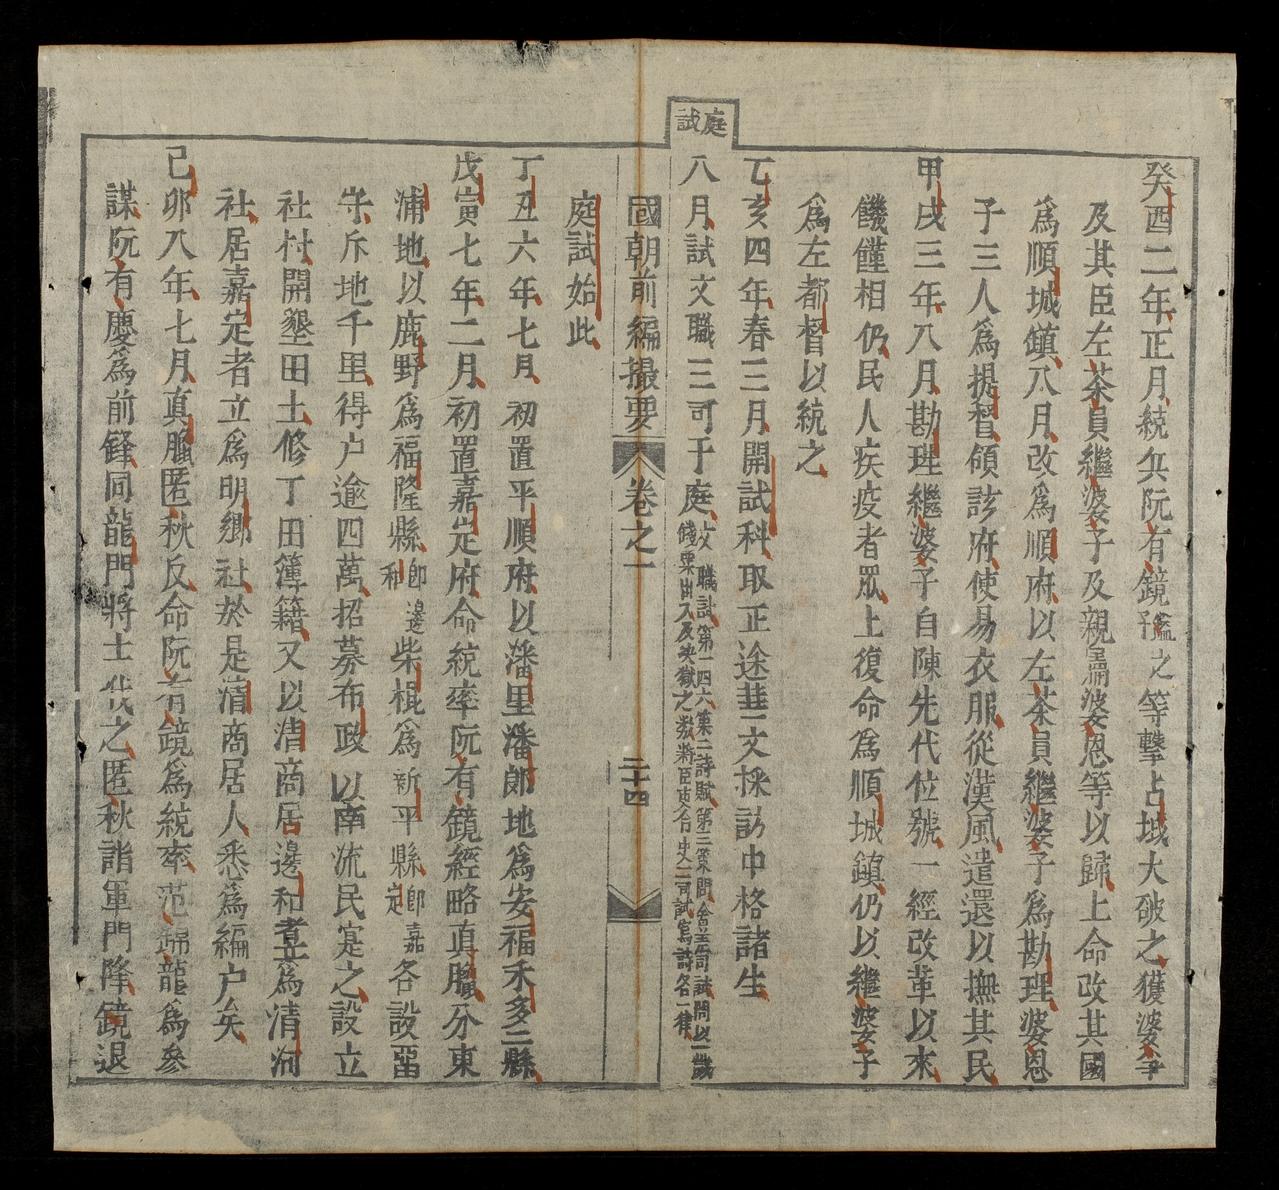 庭試
癸酉二年正月統兵阮有鏡禮之等擊占城大破之獲婆爭
及其臣左茶員繼婆子及親属婆恩等以歸上命改其國
爲順城鎮八月改爲順府以左茶員繼婆子爲勘理婆恩
子三人爲提督領該府使易衣服從漢風遣還以撫其民
甲戌三年八月勘理繼婆子自陳先代位號一經改革以來
饑饉相仍民人疾疫者眾上復命爲順城鎮仍以繼婆子
爲左都督以統之
乙亥四年春三月開試科取正途華文採訪中格諸生
八月試文職三司于庭文職試第一四六集二詩賦第三策問舍差司試問以一歲錢粟出入及決獄之數將臣吏令史二司試寫詩各一律
國朝前編撮要 卷之一 二十四
庭試始此
丁丑六年七月初置平順府以潘里潘郎地爲安福禾多二縣
戊寅七年二月初置嘉定府命統率阮有鏡經略真臘分東
浦地以鹿野爲福隆縣即邊和柴棍爲新平縣即嘉定各設留
守斥地千里得户逾四萬招募布政以南流民寔之設立
社村開墾田土修丁田簿籍又以清商居邊和者立爲清河
社居嘉定者立爲明鄉社於是清商居人悉爲編户矣
己卯八年七月真臘匿秋反命阮有鏡爲統率范錦龍爲參
謀阮有慶爲前鋒同龍門將士伐之匿秋詣軍門降鏡退